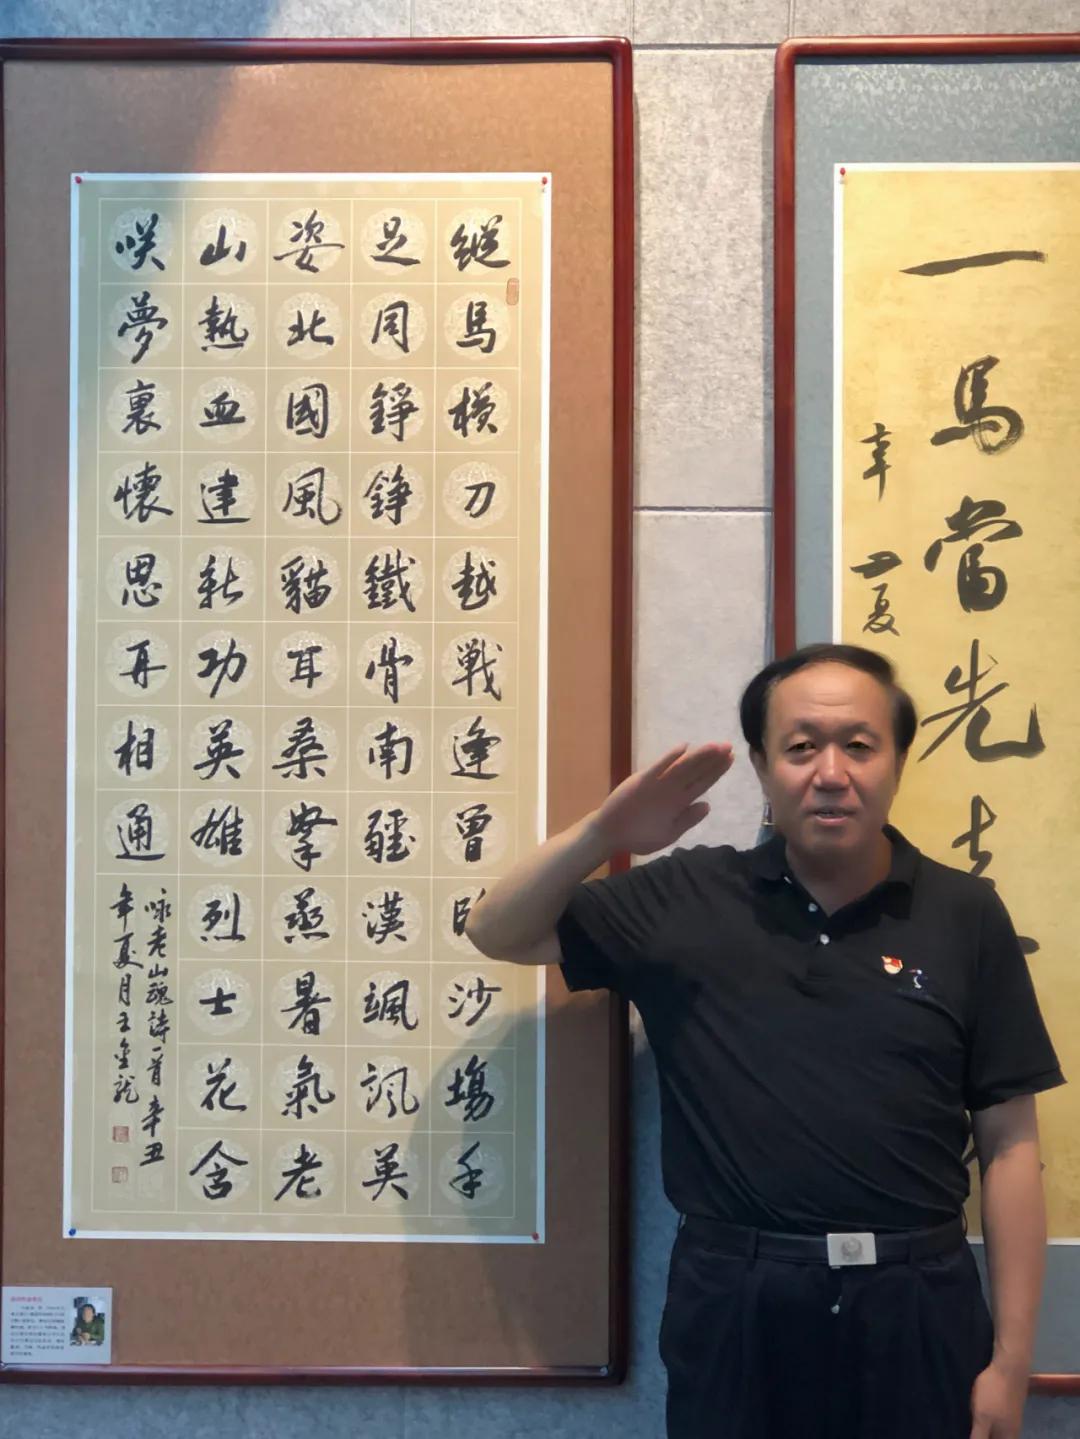 縱馬横刀越戦逢曾沙塲手
足同錚錚鐵骨南疆漢颯颯英
姿北國風貓耳桑拏蒸暑氣老
山熱血建新功英雄烈士花含
咲夢裏懷思再相通
咏老山魂詩一首辛丑
年夏月王金龍
一馬當先
辛丑夏